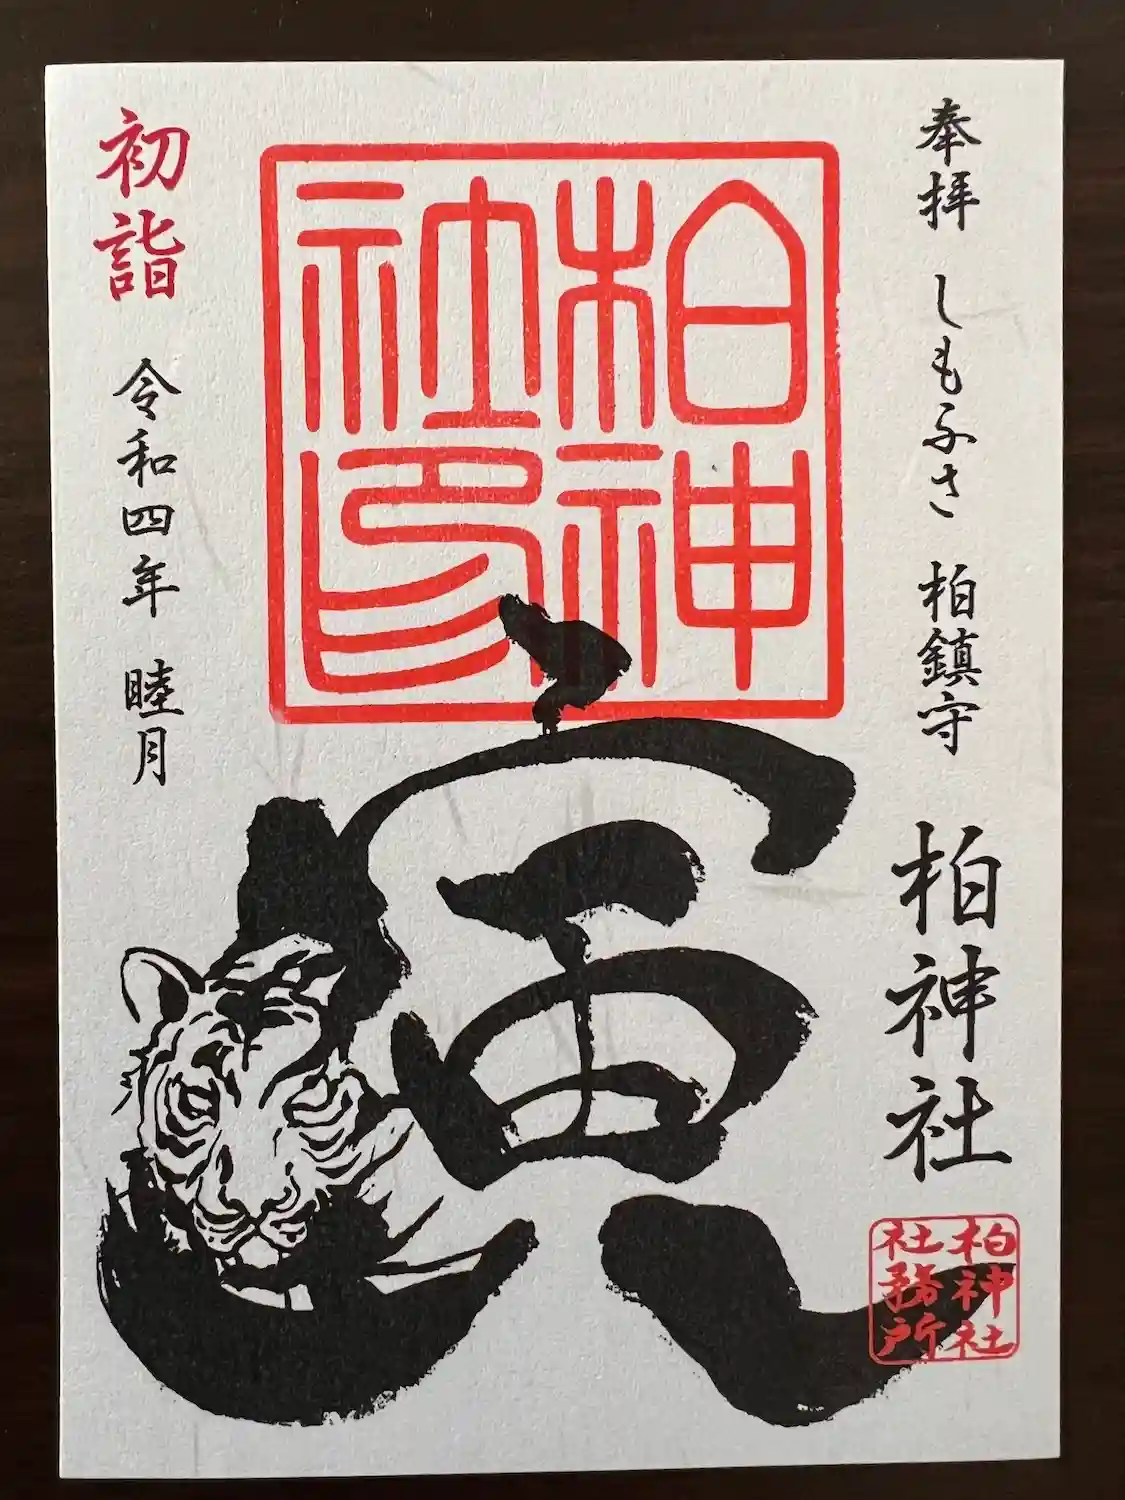 奉拝 しもふさ 柏鎮守 柏神社
柏神
社印
寅
初詣 令和四年 睦月
柏神社
社務所